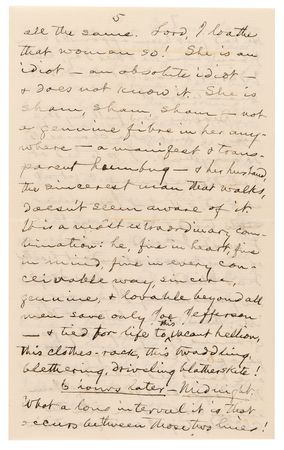 5
all the same. Lord, I loathe
that woman so! She is an
idiot — an absolute idiot —
& does not know it. She is
sham, sham, sham — not
a genuine fibre in her any-
where — a manifest & trans-
parent humbug — & her husband,
the sincerest man that walks,
doesn't seem aware of it.
It is a most extraordinary com-
bination: he, fine in heart, fine
in mind, fine in every con-
ceivable way, sincere,
genuine, & lovable beyond all
men save only Joe Jefferson
— & tied for life to this vacant hellion,
this clothes-rack, this twaddling,
blethering, driveling blatherskite!
6 hours later — Midnight.
What a long interval it is that
occurs between those two lines!